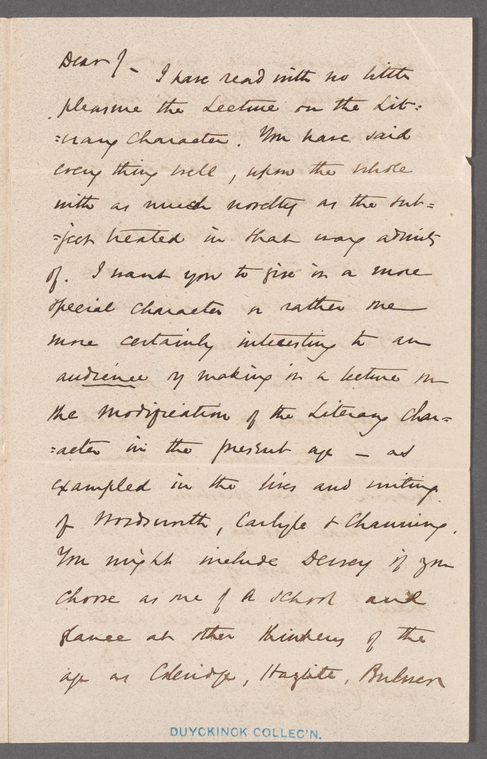 Dear J— I have read with no little
pleasure the Lecture on the Lit=
=erary Character. You have said
every thing well, upon the whole
with as much novelty as the sub=
=ject treated in that way admits
of. I want you to give it a more
special character or rather one
more certainly interesting to an
audience by making it a lecture on
the Modification of the Literary Char=
=acter in the present age — as
exampled in the lives and writing
of Wordsworth, Carlyle & Channing.
You might include Dewey if you
choose as one of a school and
glance at other thinkers of the
age as Coleridge, Hazlitt, Bulwer
DUYCKINCK COLLEC'N.